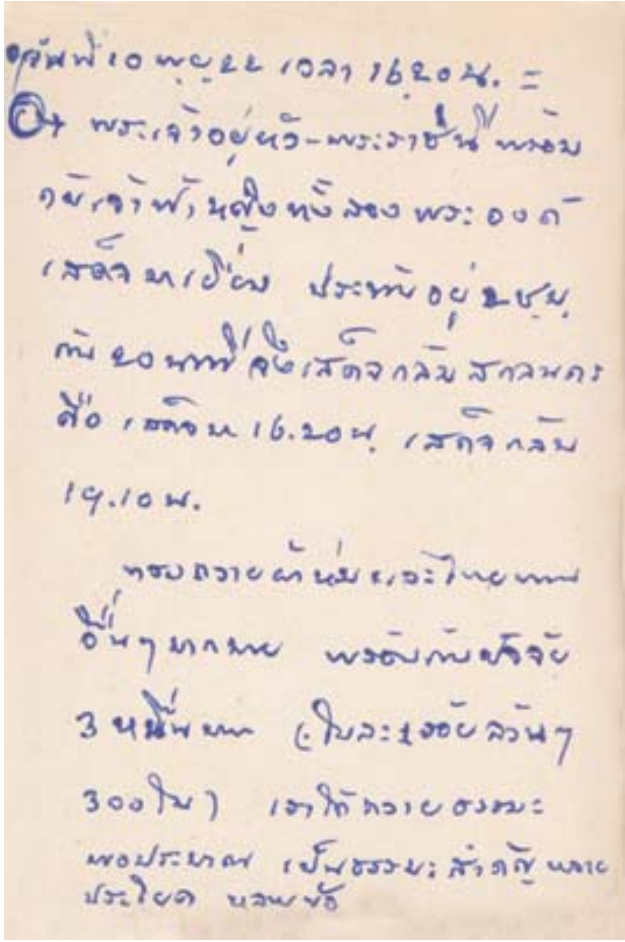 วันที่ 10 พ.ย. 22 เวลา 16.20 น. =
พระเจ้าอยู่หัว-พระราชินี พร้อม
ด้วยเจ้าฟ้าหญิงทั้งสองพระองค์
เสด็จมาเยี่ยม ประทับอยู่ 2 ช.ม.
กับ 20 นาที จึงเสด็จกลับสกลนคร
คือ เสด็จมา 16.20 น. เสด็จกลับ
19.10 น.
ทรงถวายผ้าห่มและไทยทาน
อื่นๆ มากมาย พร้อมกับปัจจัย
3 หมื่นบาท (ใบละ 1 ร้อยล้วนๆ
300 ใบ) เราได้ถวายธรรมะ
พอประมาณ เป็นธรรมะสำคัญหลาย
ประโยค หลายข้อ